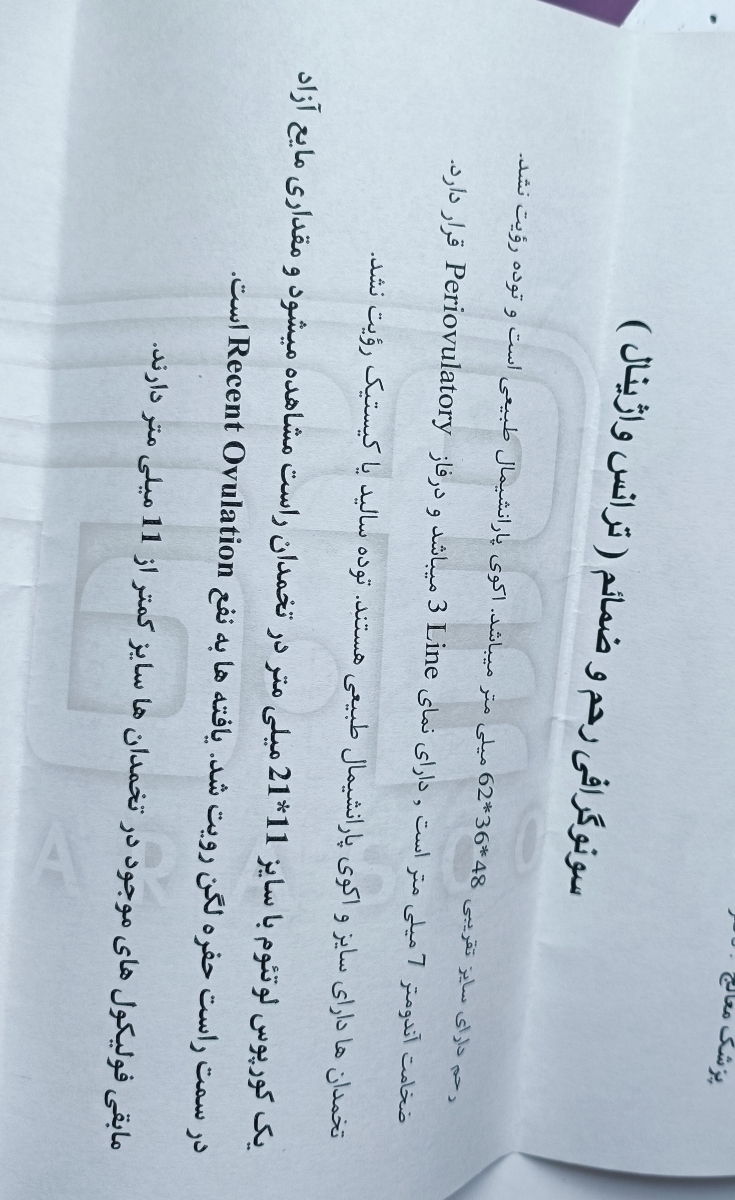 پزشک معالج :
سونوگرافی رحم و ضمائم ( ترانس واژینال )
رحم دارای سایز تقریبی 48*36*62 میلی متر میباشد. اکوی پارانشیمال طبیعی است و توده رؤیت نشد.
ضخامت آندومتر 7 میلی متر است , دارای نمای 3 Line میباشد و درفاز Periovulatory قرار دارد.
تخمدان ها دارای سایز و اکوی پارانشیمال طبیعی هستند. توده سالید یا کیستیک رؤیت نشد.
یک کورپوس لوتئوم با سایز 11*21 میلی متر در تخمدان راست مشاهده میشود و مقداری مایع آزاد
در سمت راست حفره لگن رویت شد. یافته ها به نفع Recent Ovulation است.
مابقی فولیکول های موجود در تخمدان ها سایز کمتر از 11 میلی متر دارند.
ARASOO